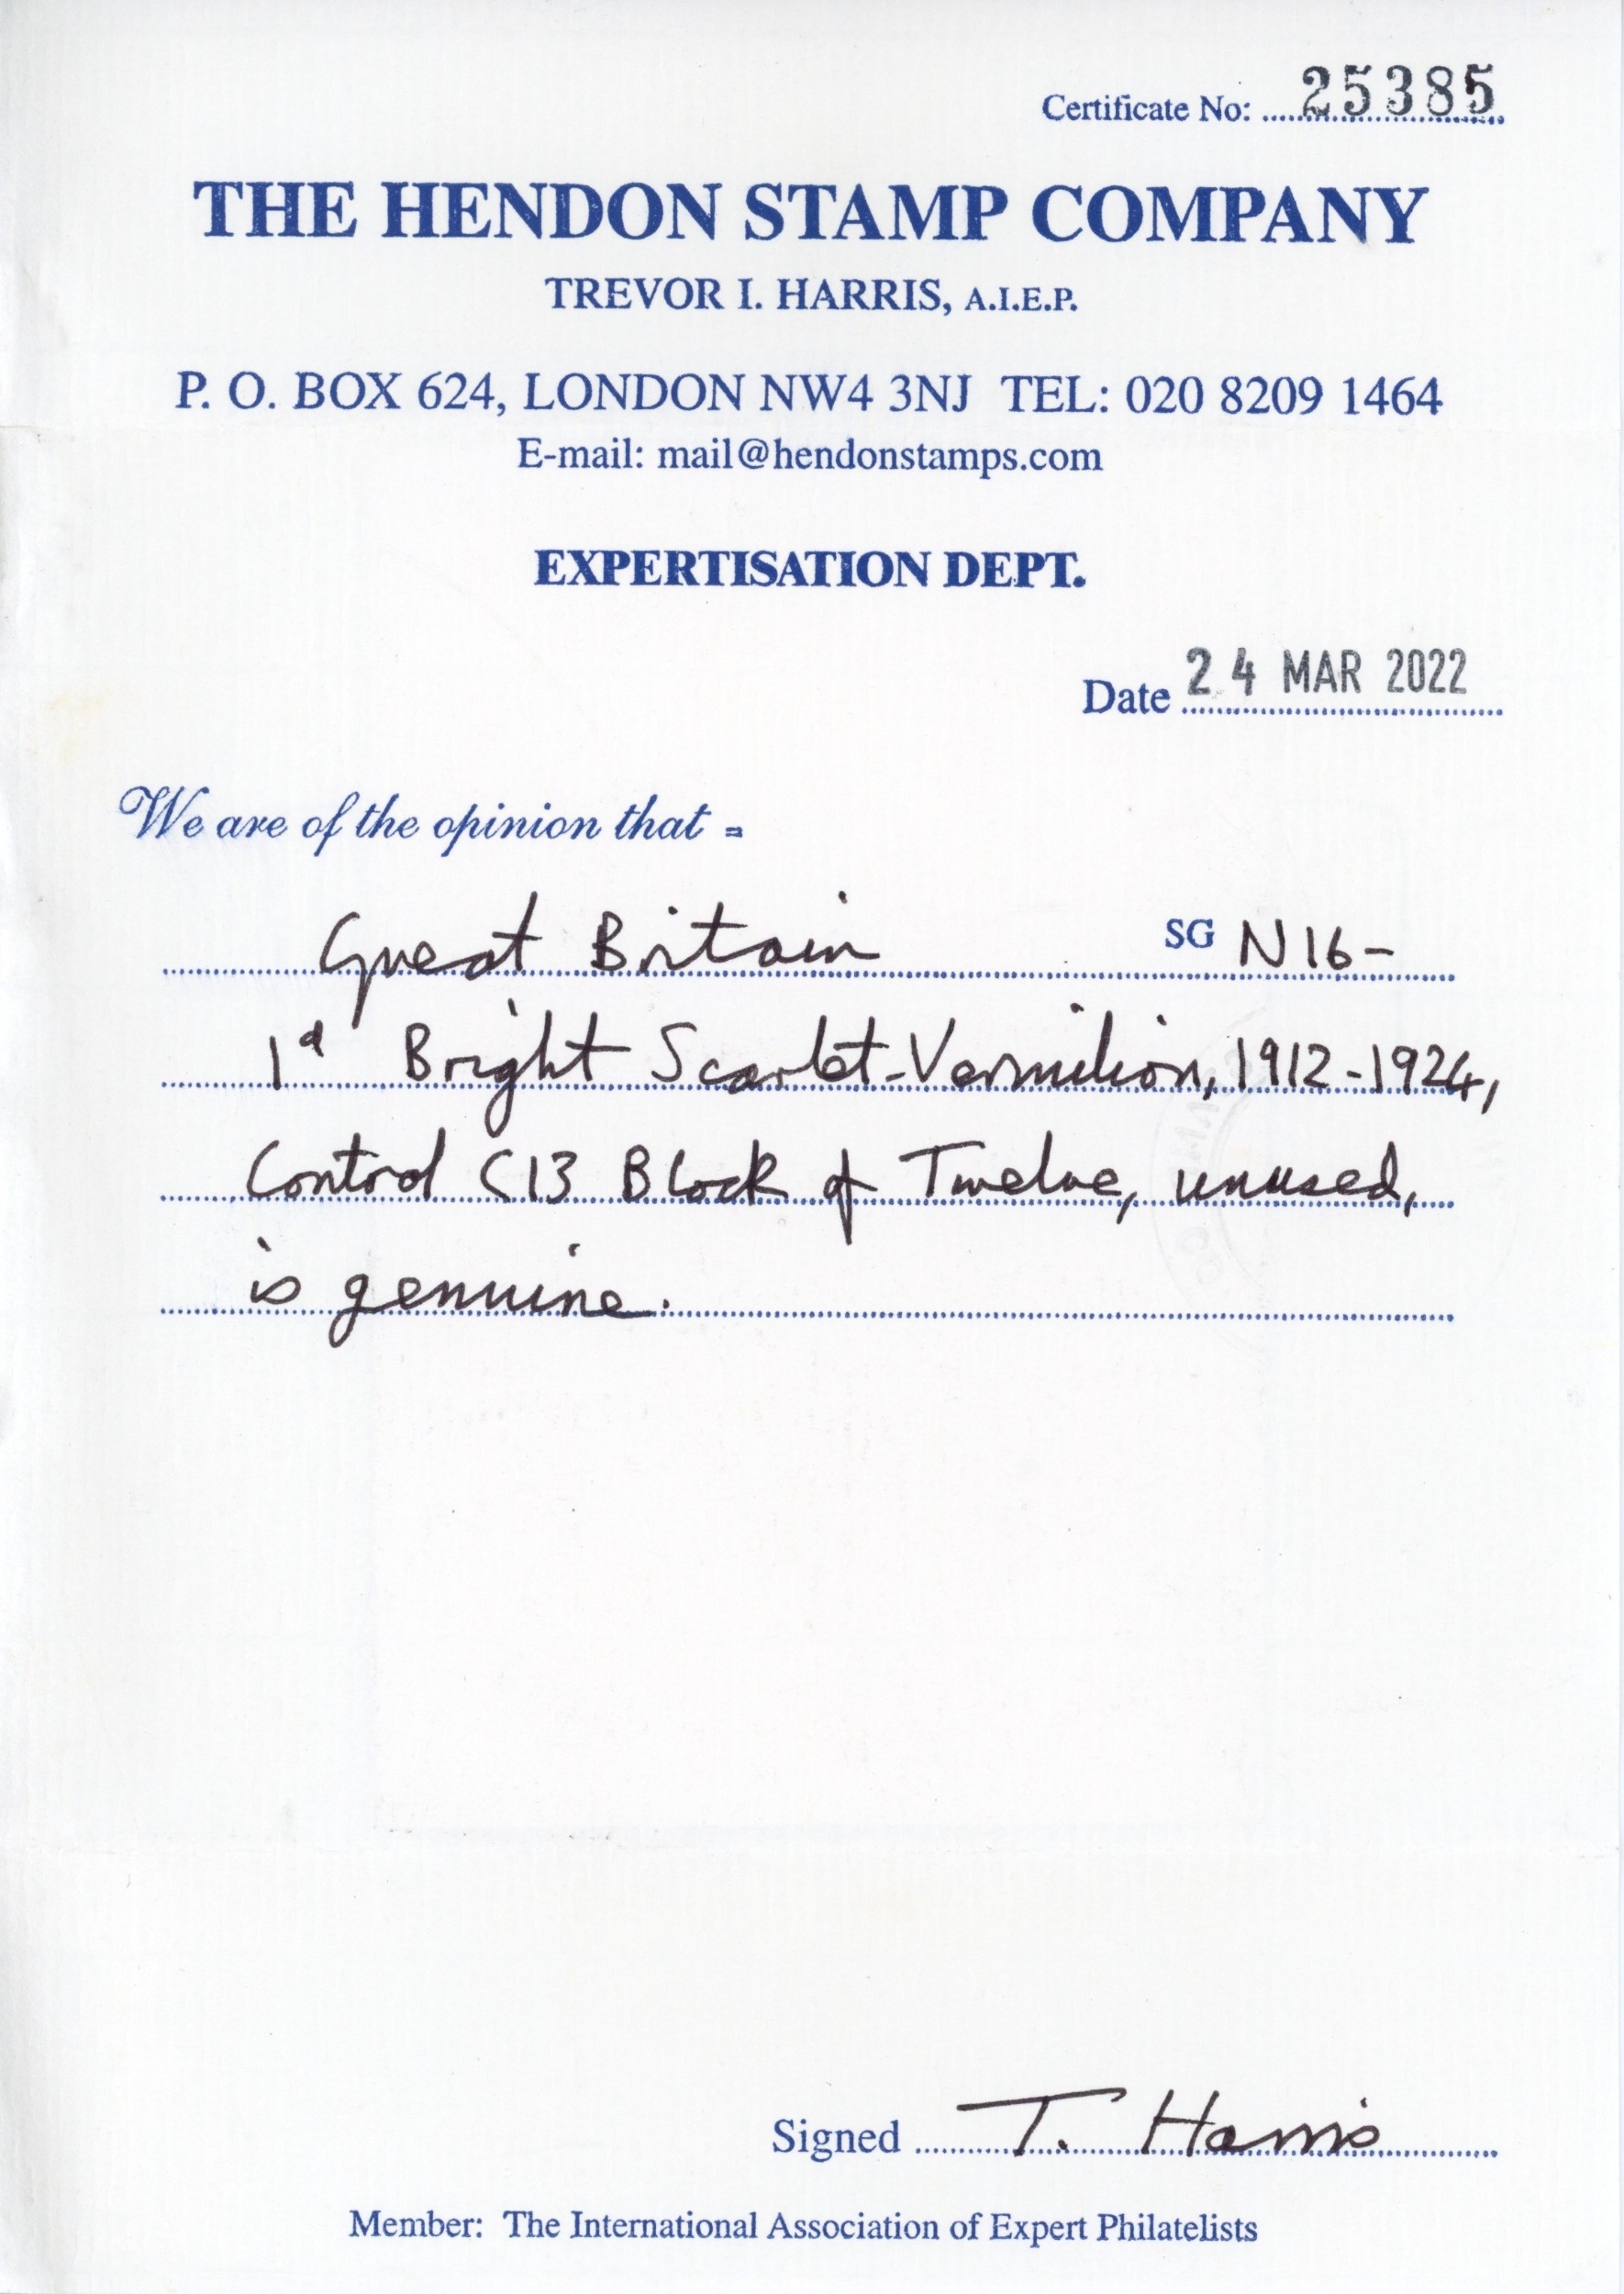 Certificate No: 25385
THE HENDON STAMP COMPANY
TREVOR I. HARRIS, A.I.E.P.
P. O. BOX 624, LONDON NW4 3NJ TEL: 020 8209 1464
E-mail: mail@hendonstamps.com
EXPERTISATION DEPT.
Date 24 MAR 2022
We are of the opinion that -
Great Britain SG N16-
1d Bright Scarlet-Vermilion, 1912-1924,
Control C13 Block of Twelve, unused,
is genuine.
Signed T. Harris
Member: The International Association of Expert Philatelists